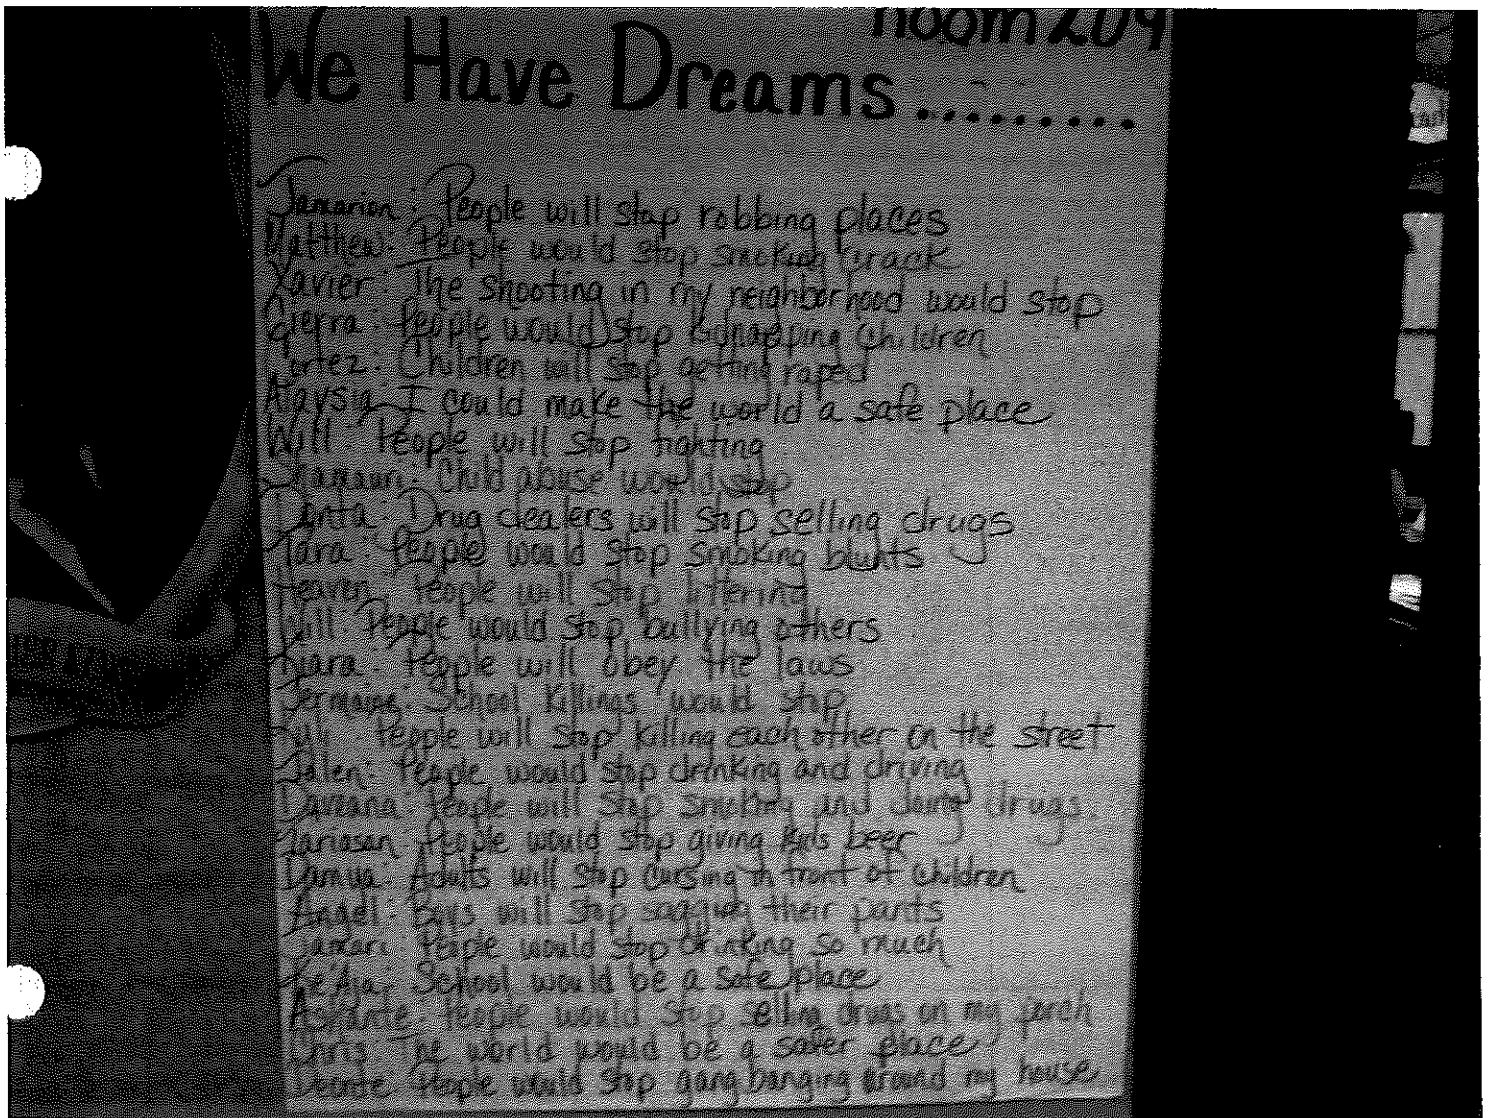 Room 209
We Have Dreams.........
Jamarion: People will stop robbing places
Matthew: People would stop smoking crack
Xavier: The shooting in my neighborhood would stop
Cierra: People would stop kidnapping children
Children will stop getting raped
Alaysia: I could make the world a safe place
Will: People will stop fighting
Child abuse would stop
Donta: Drug dealers will stop selling drugs
People would stop smoking blunts
Heaven: People will stop littering
People would stop bullying others
People will obey the laws
Jermaine: School killings would stop
People will stop killing each other on the street
Jalen: People would stop drinking and driving
People will stop smoking and doing drugs.
People would stop giving kids beer
Damya: Adults will stop cursing in front of children
Angel: Boys will stop sagging their pants
Jamari: People would stop drinking so much
Ke'Aja: School would be a safe place
Ashante: People would stop selling drugs on my porch
Chris: The world would be a safer place
People would stop gang banging around my house